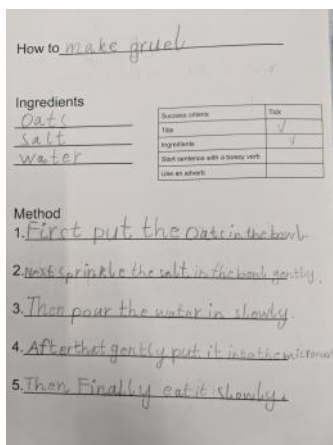 How to make gruel
Ingredients
Oats
salt
water
Success criteria Tick
Title ✓
Ingredients ✓
Start sentence with a bossy verb
Use an adverb
Method
1. First put the oats in the bowl
2. Next sprinkle the salt in the bowl gently.
3. Then pour the water in slowly.
4. After that gently put it into the microwav
5. Then Finally eat it slowly.